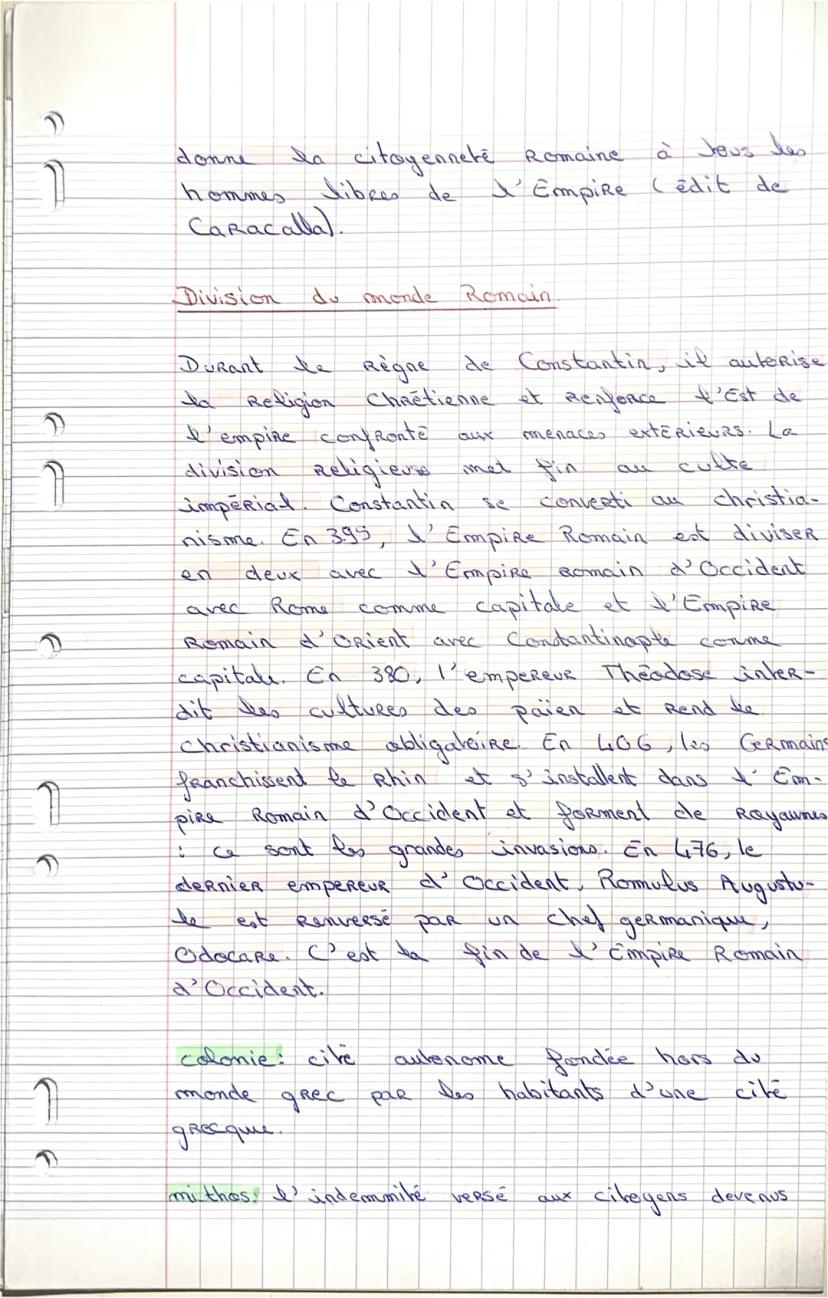 donne la citoyenneté Romaine à tous les
hommes libres de l'Empire (édit de
Caracalla).
Division du monde Romain
Durant le règne de Constantin, il autorise
la religion Chrétienne et renforce l'Est de
l'empire confronté aux menaces extérieurs. La
division religieuse met fin au culte
impérial. Constantin se converti au christia-
nisme. En 395, l'Empire Romain est diviser
en deux avec l'Empire romain d'Occident
avec Rome comme capitale et l'Empire
Romain d'Orient avec Constantinople comme
capitale. En 380, l'empereur Théodose inter-
dit les cultures des païen et rend le
christianisme obligatoire. En 406, les Germains
franchissent le Rhin et s'installent dans l'Em-
pire Romain d'Occident et forment de Royaumes
: ce sont les grandes invasions. En 476, le
dernier empereur d'Occident, Romulus Augustu-
le est renversé par un chef germanique,
Odocare. C'est la fin de l'Empire Romain
d'Occident.
colonie: cité autonome fondée hors du
monde grec par les habitants d'une cité
grecque.
mithos: l'indemmité versé aux citoyens devenus